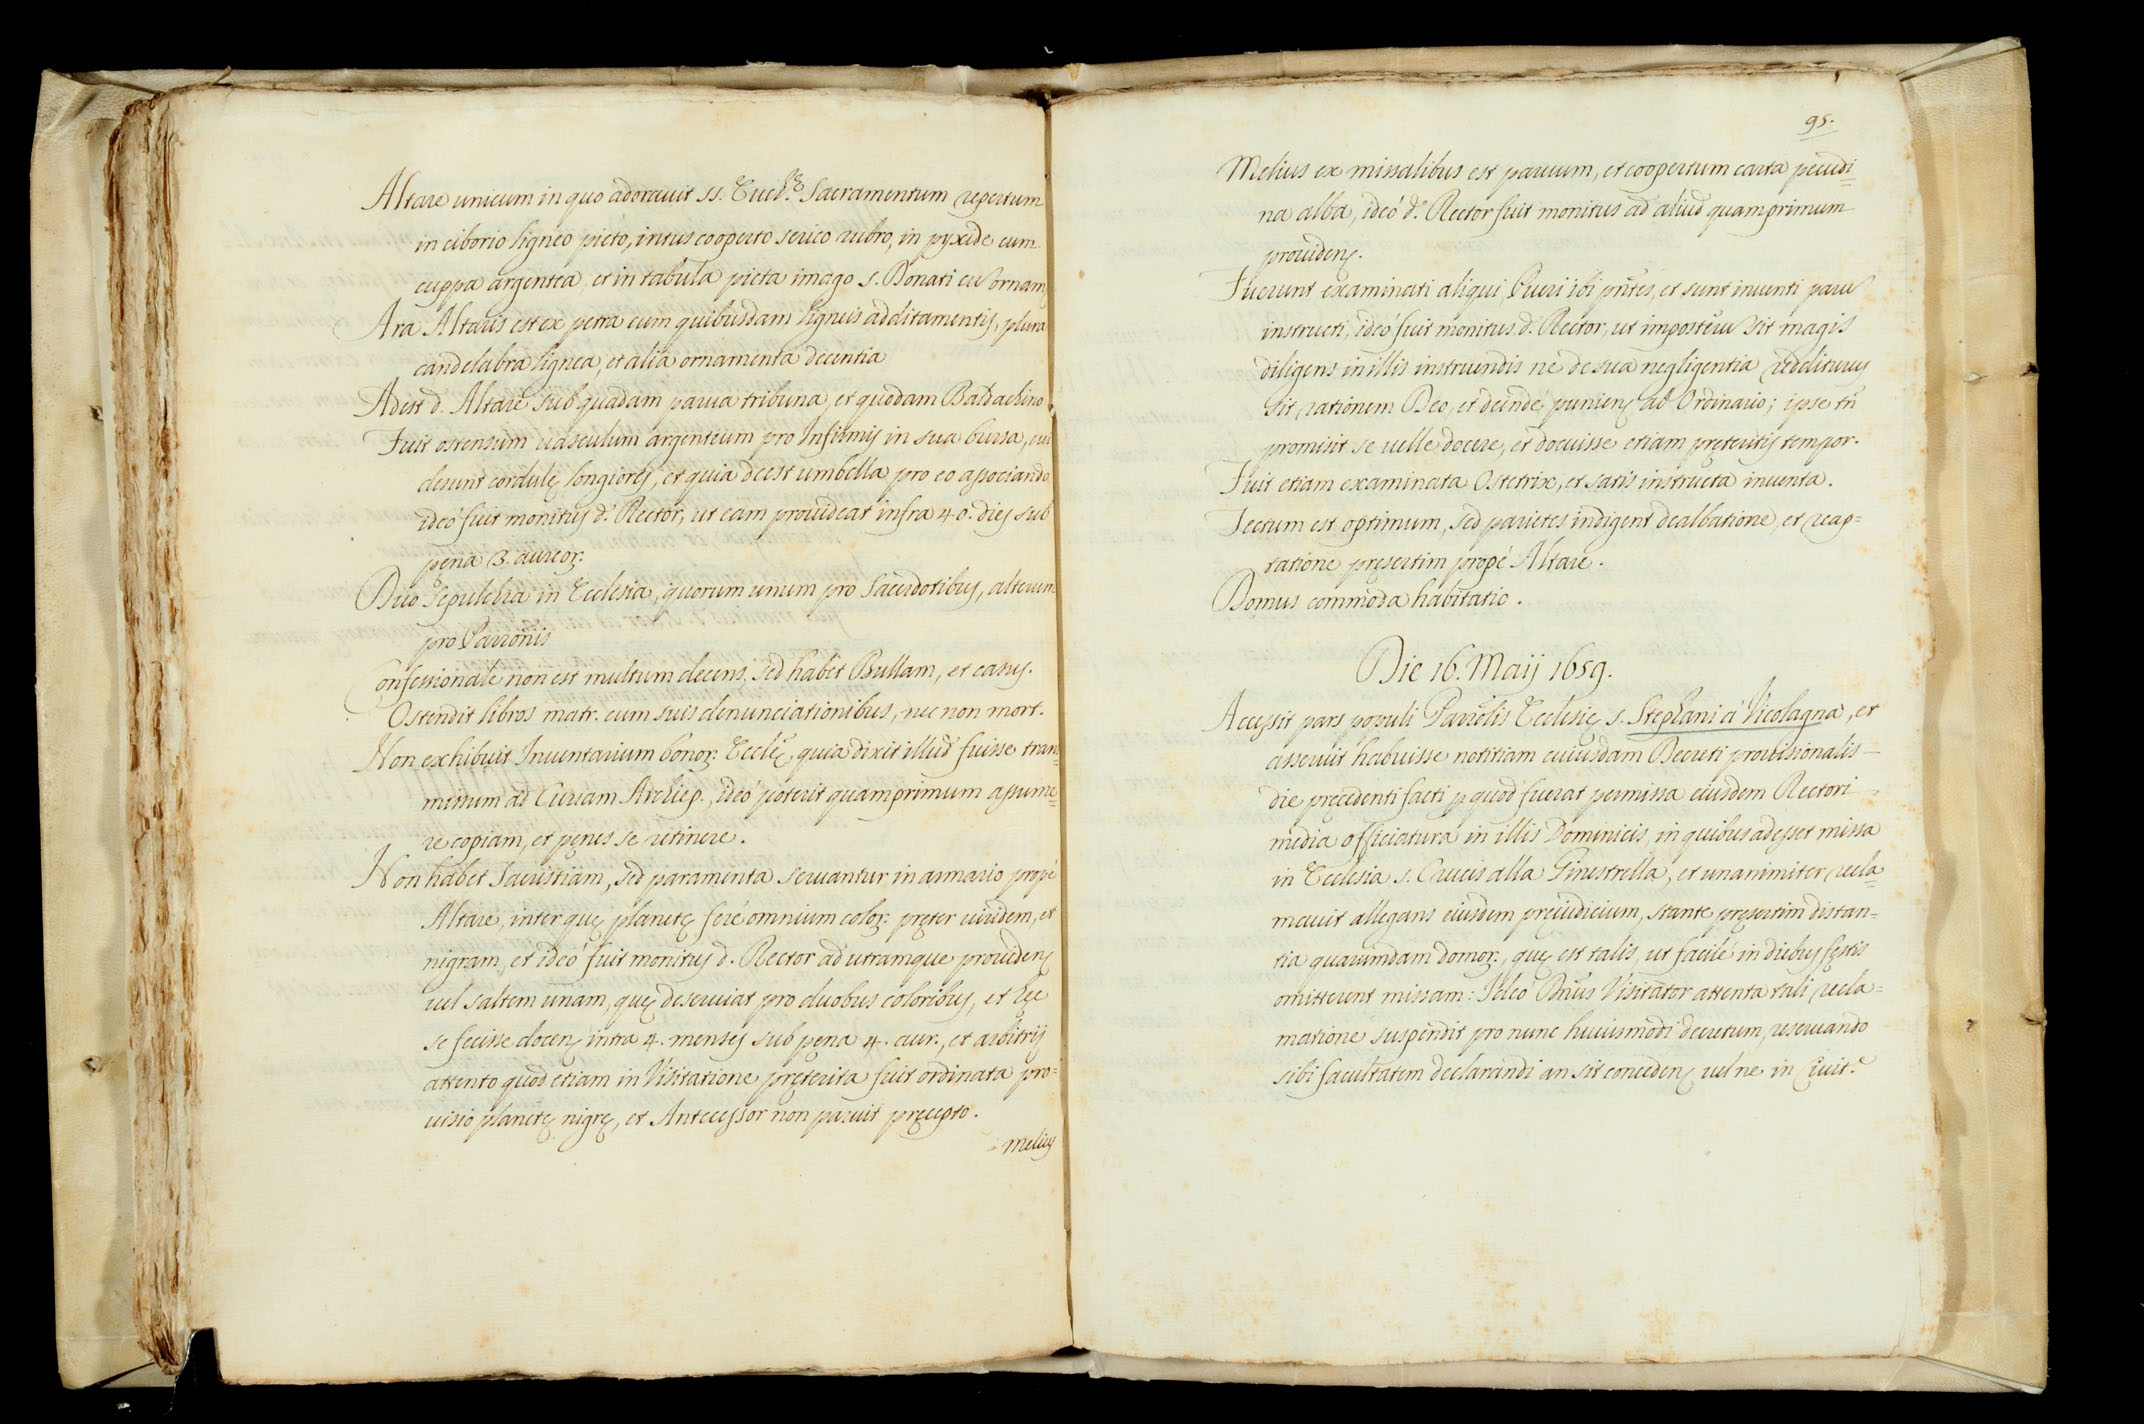 Altare unicum in quo adoravit SS. Euch.æ Sacramentum repertum
in ciborio ligneo picto, intus cooperto serico rubro, in pyxide cum
cuppa argentea et in tabula picta imago S. Donati cũ ornam.
Ara Altaris est ex petra cum quibusdam ligneis additamentis, plura
candelabra lignea, et alia ornamenta decentia
Adest d. Altare sub quadam parua tribuna, et quodam Baldachino
Fuit ostensum uasculum argenteum pro Infirmis in sua bursa, cui
desunt cordulę longiores, et quia deest umbella pro eo associando
ideò fuit monitus d. Rector, ut eam prouideat infra 40. dies sub
pena 3. aureor.
Duo Sepulchra in Ecclesia, quorum unum pro Sacerdotibus, alterum
pro Parronis
Confessionale non est multum decens, sed habet Bullam, et casus.
Ostendit libros matr. cum suis denunciationibus, nec non mort.
Non exhibuit Inuentarium bonor. Ecclę, quia dixit illud fuisse tran=
missum ad Curiam Archiep., ideò poterit quamprimum assume=
re copiam, et penes se retinere.
Non habet Sacristiam, sed paramenta seruantur in armario propè
Altare, inter quę planetę ferè omnium color. pręter uiridem, et
nigram, et ideò fuit monitus d. Rector ad utramque prouidens
uel saltem unam, quę deseruiat pro duobus coloribus, et hęc
se fecisse docens intra 4. menses sub pęna 4. aur., et arbitrij
attento quod etiam in Visitatione pręterita fuit ordinata pro=
uisio planetę nigrę, et Antecessor non paruit pręcepto.
Melius
95.
Melius ex missalibus est paruum, et coopertum carta pecudi=
na alba, ideò d. Rector fuit monitus ad aliud quamprimum
prouidens.
Fuerunt examinati aliqui Pueri ibi pñtes, et sunt inuenti parũ
instructi, ideò fuit monitus d. Rector, ut imposterũ sit magis
diligens in illis instruendis ne de sua negligentia redditurus
sit rationem Deo, et deindè puniens ab Ordinario; ipse tñ
promisit se uelle docere, et docuisse etiam pręteritis tempor.
Fuit etiam examinata Ostetrix, et satis instructa inuenta.
Tectum est optimum, sed parietes indigent dealbatione, et reap=
tatione pręsertim propè Altare.
Domus commoda habitatio.
Die 16. Maij 1659.
Accessit pars populi Parrõlis Ecclesię S. Stephani à Vicolagna, et
asseruit habuisse notitiam cuiusdam Decreti prouisionalis
die pręcedenti facti p quod fuerat permissa eiusdem Rectori
media officiatura in illis Dominicis, in quibus adesset missa
in Ecclesia S. Crucis alla Ginestrella, et unanimiter recla=
mauit allegans eiusdem preiudicium, stante pręsertim distan=
tia quarumdam domor., quę est talis, ut facilè in diebus festis
omitterent missam: Ideò Dñus Visitator attenta tali recla=
matione suspendit pro nunc huiusmodi decretum, reseruando
sibi facultatem declarandi an sit concedens uel ne in Ciuit.e